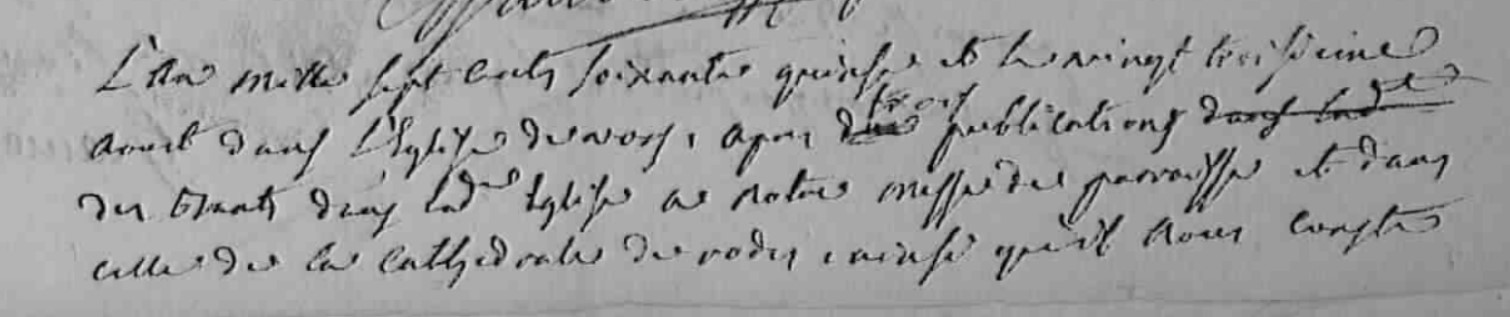 L'an mille sept cents soixante quinse et le vingt troisieme
avril dans l'Eglise de vors, apres deux trois publications dans lad te
des bancts dans lad te Eglise a notre messe de parroisse et dans
celle de la cathedrale de rodez, ainsi qu'il nous conste